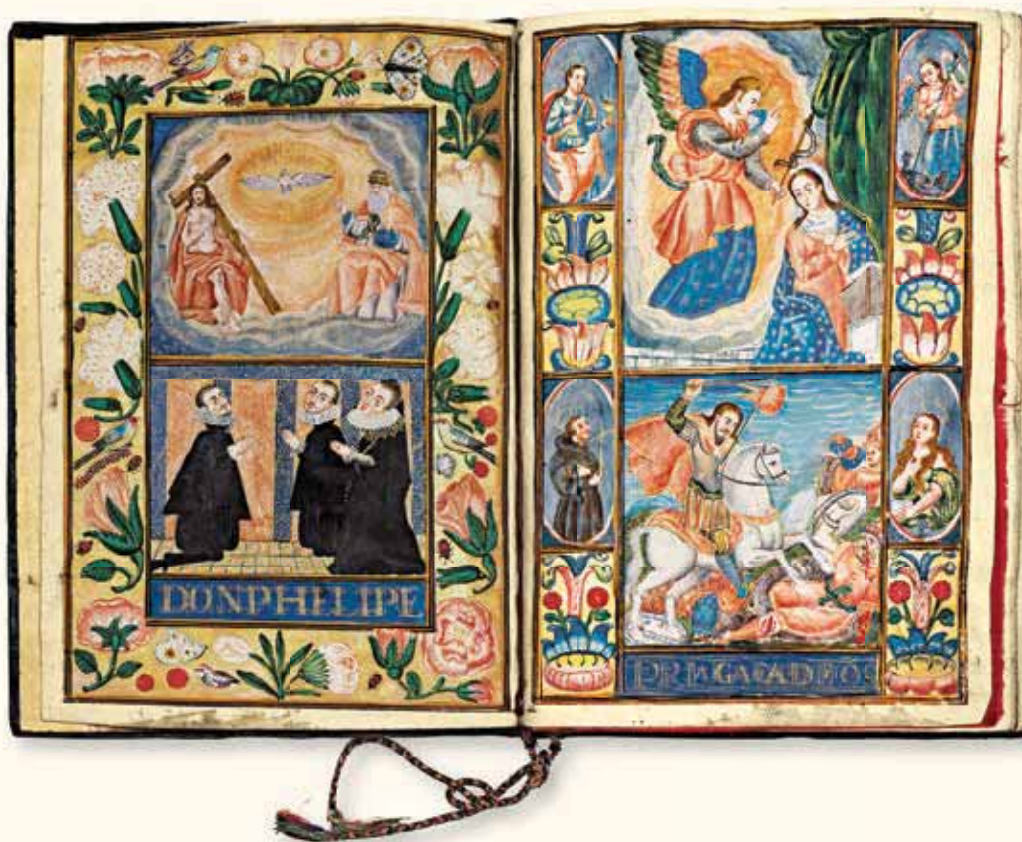 DON PHELIPE
POR LA GRACIA D DIOS